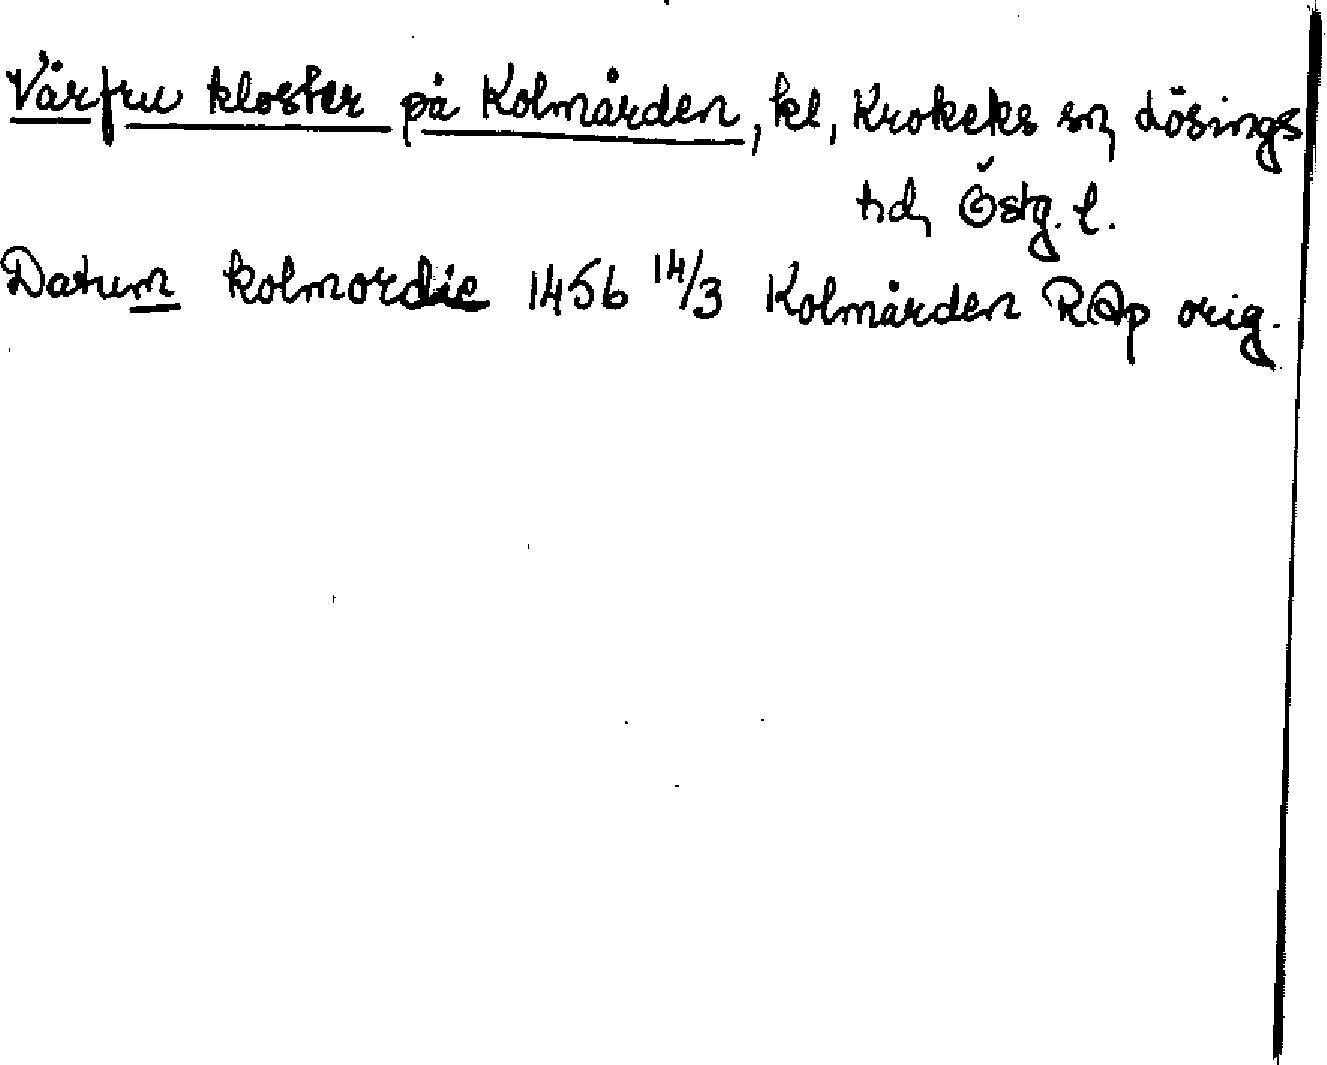 Vårfru kloster på Kolmården, kl, Krokeks sn, Lösings
hd, Östg. l.
Datum kolmordie 1456 14/3 Kolmården RAp orig.